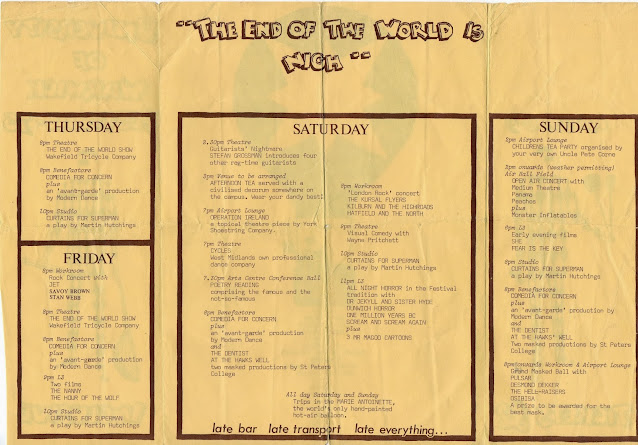 "THE END OF THE WORLD IS
NIGH"
THURSDAY
8pm Theatre
THE END OF THE WORLD SHOW
Wakefield Tricycle Company
8pm Benefactors
COMEDIA FOR CONCERN
plus
an 'avant-garde' production
by Modern Dance
10pm Studio
CURTAINS FOR SUPERMAN
a play by Martin Hutchings
FRIDAY
8pm Workroom
Rock Concert with
JET
SAVOY BROWN
STAN WEBB
8pm Theatre
THE END OF THE WORLD SHOW
Wakefield Tricycle Company
8pm Benefactors
COMEDIA FOR CONCERN
plus
an 'avant-garde' production
by Modern Dance
9pm L3
Two films
THE NANNY
THE HOUR OF THE WOLF
10pm Studio
CURTAINS FOR SUPERMAN
a play by Martin Hutchings
SATURDAY
2.30pm Theatre
Guitarists' Nightmare
STEFAN GROSSMAN introduces four
other rag-time guitarists
3pm Venue to be arranged
AFTERNOON TEA served with a
civilised decorum somewhere on
the campus. Wear your dandy best!
7pm Airport Lounge
OPERATION IRELAND
a topical theatre piece by York
Shoestring Company.
7pm Theatre
CYCLES
West Midlands own professional
dance company
7.30pm Arts Centre Conference Hall
POETRY READING
comprising the famous and the
not-so-famous
8pm Benefactors
COMEDIA FOR CONCERN
plus
an 'avant-garde' production
by Modern Dance
and
THE DENTIST
AT THE HAWKS WELL
two masked productions by St Peters
College
8pm Workroom
'London Rock' concert
THE KURSAL FLYERS
KILBURN AND THE HIGHROADS
HATFIELD AND THE NORTH
9pm Theatre
Visual Comedy with
Wayne Pritchett
10pm Studio
CURTAINS FOR SUPERMAN
a play by Martin Hutchings
11pm L3
ALL NIGHT HORROR in the Festival
tradition with
DR JEKYLL AND SISTER HYDE
DUNWICH HORROR
ONE MILLION YEARS BC
SCREAM AND SCREAM AGAIN
plus
3 MR MAGOO CARTOONS
All day Saturday and Sunday
Trips in the MARIE ANTOINETTE,
the world's only hand-painted
hot-air balloon.
late bar late transport late everything...
SUNDAY
2pm Airport Lounge
CHILDRENS TEA PARTY organised by
your very own Uncle Pete Corne
3pm onwards (weather permitting)
Air Ball Field
OPEN AIR CONCERT with
Medium Theatre
Panama
Poochos
plus
Monster Inflatables
6pm L3
Early evening films
SHE
FEAR IS THE KEY
8pm Studio
CURTAINS FOR SUPERMAN
a play by Martin Hutchings
8pm Benefactors
COMEDIA FOR CONCERN
plus
an 'avant-garde' production by
Modern Dance
and
THE DENTIST
AT THE HAWKS' WELL
Two masked productions by St Peters
College
8pm onwards Workroom & Airport Lounge
Grand Masked Ball with
PULSAR
DESMOND DEKKER
THE HELL-RAISERS
OSIBISA
A prize to be awarded for the
best mask.